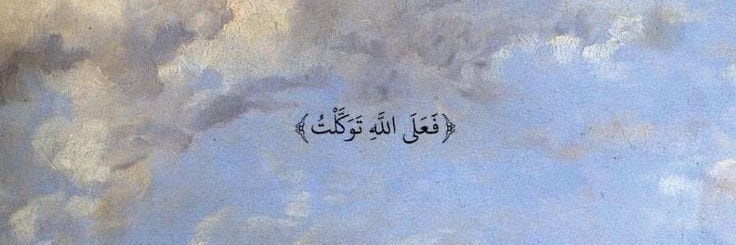 ﴿فَعَلَى اللَّهِ تَوَكَّلْتُ﴾